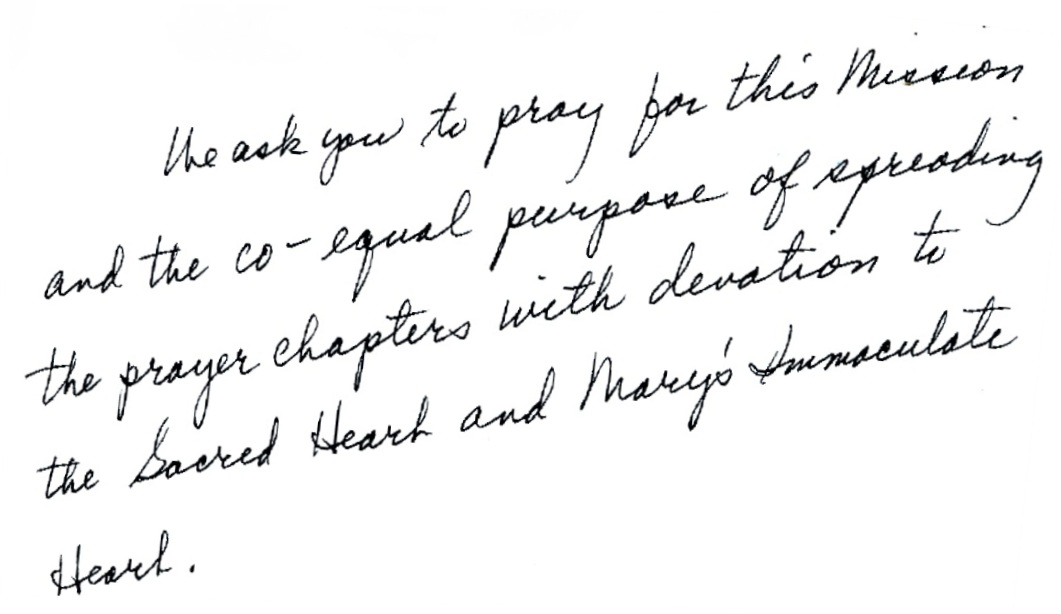 We ask you to pray for this Mission
and the co-equal purpose of spreading
the prayer chapters with devotion to
the Sacred Heart and Mary's Immaculate
Heart.